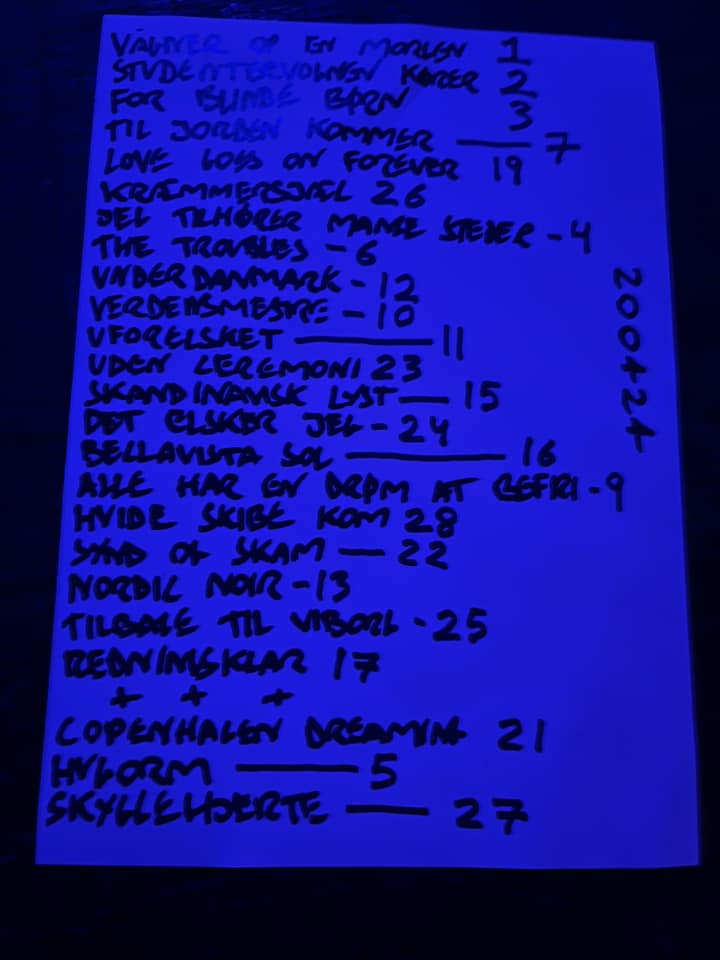 VÅGNER OP EN MORGEN 1
STUDENTERVOGNEN KØRER 2
FOR BLINDE BØRN 3
TIL JORDEN KOMMER — 7
LOVE LOSS ON FOREVER 19
KRÆMMERSJÆL 26
JEG TILHØRER MANGE STEDER - 4
THE TROUBLES - 6
UNDER DANMARK - 12
VERDENSMESTRE - 10
UFORELSKET — 11
UDEN CEREMONI 23
SKANDINAVISK LYST — 15
DET ELSKER JEG - 24
BELLAVISTA SOL — 16
ALLE HAR EN DRØM AT BEFRI - 9
HVIDE SKIBE KOM 28
SYND OG SKAM — 22
NORDIC NOIR - 13
TILBAGE TIL VIBORG - 25
REDNINGSKLAR 17
+ + +
COPENHAGEN DREAMING 21
HVGORM — 5
SKYLLEHJERTE — 27
200424